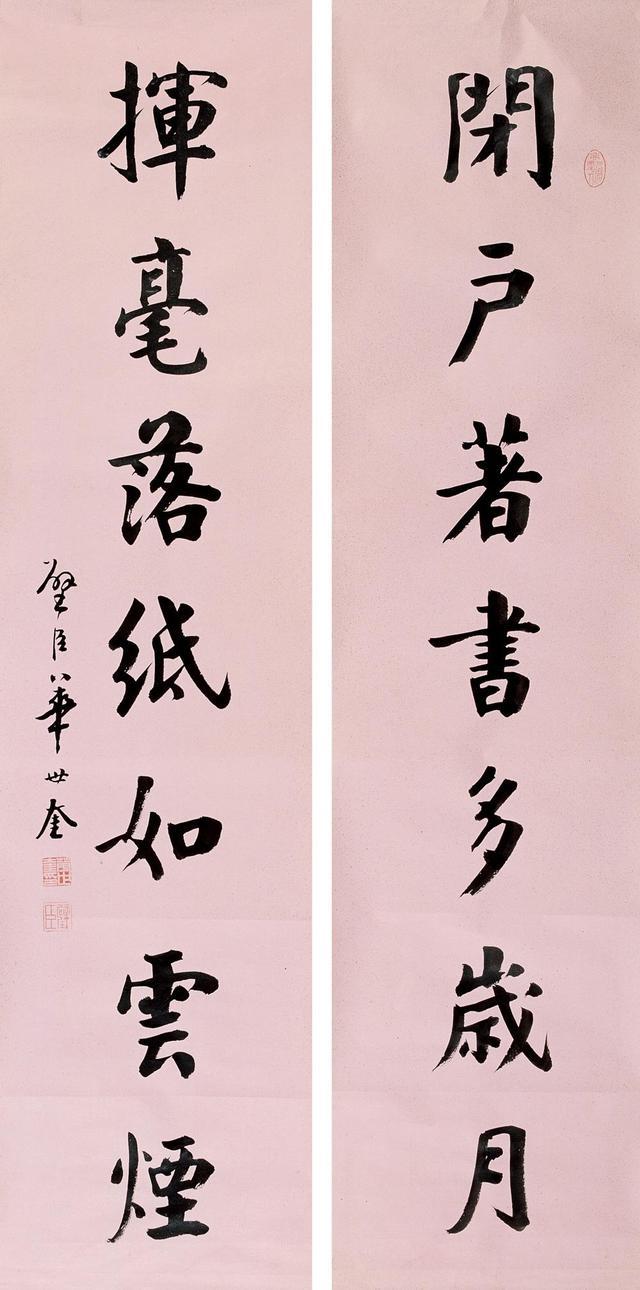 閉户著書多歲月
揮毫落紙如雲煙
璧臣華世奎